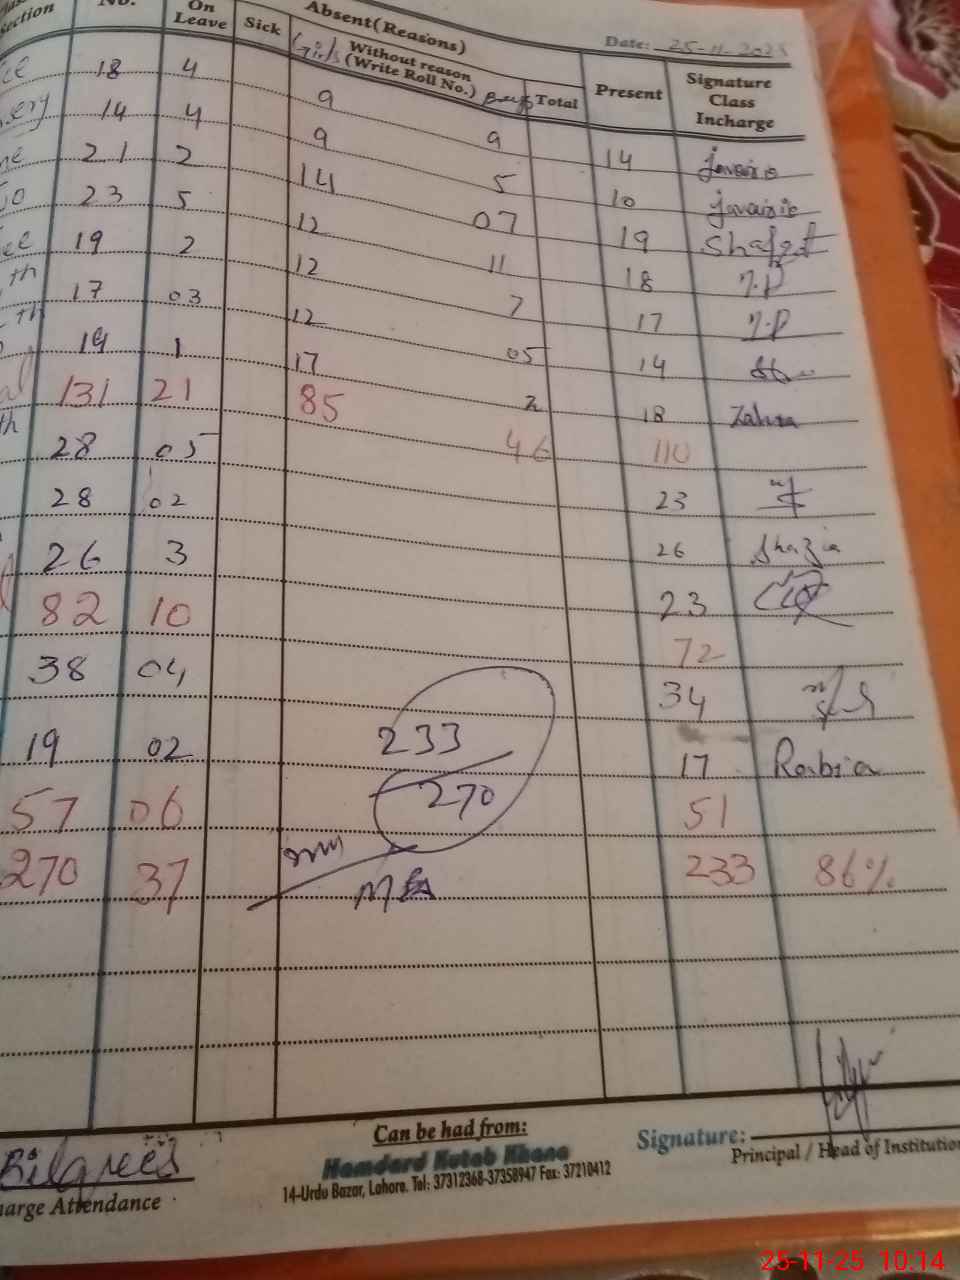 Absent(Reasons)
Date: 25-11-2025
Section No. On Leave Sick Girls Without reason (Write Roll No.) Boys Total Present Signature Class Incharge
18 4 9 9 14 Javairia
14 4 9 5 10 Javairia
21 2 14 07 19 Shafqat
23 5 12 11 18
19 2 12 7 17
th 17 03 12 05 14
th 19 1 17 2 18 Zahra
131 21 85 46 110
th 28 05 23
28 02 26 Shazia
26 3 23
82 10 72
38 04 34
233
19 02 17 Rabia
270
57 06 51
270 37 233 86%
Can be had from:
Hamdard Kutab Khana
14-Urdu Bazar, Lahore. Tel: 37312368-37358947 Fax: 37210412
Signature:
Principal / Head of Institution
Bilqees
Incharge Attendance
25-11-25 10:14